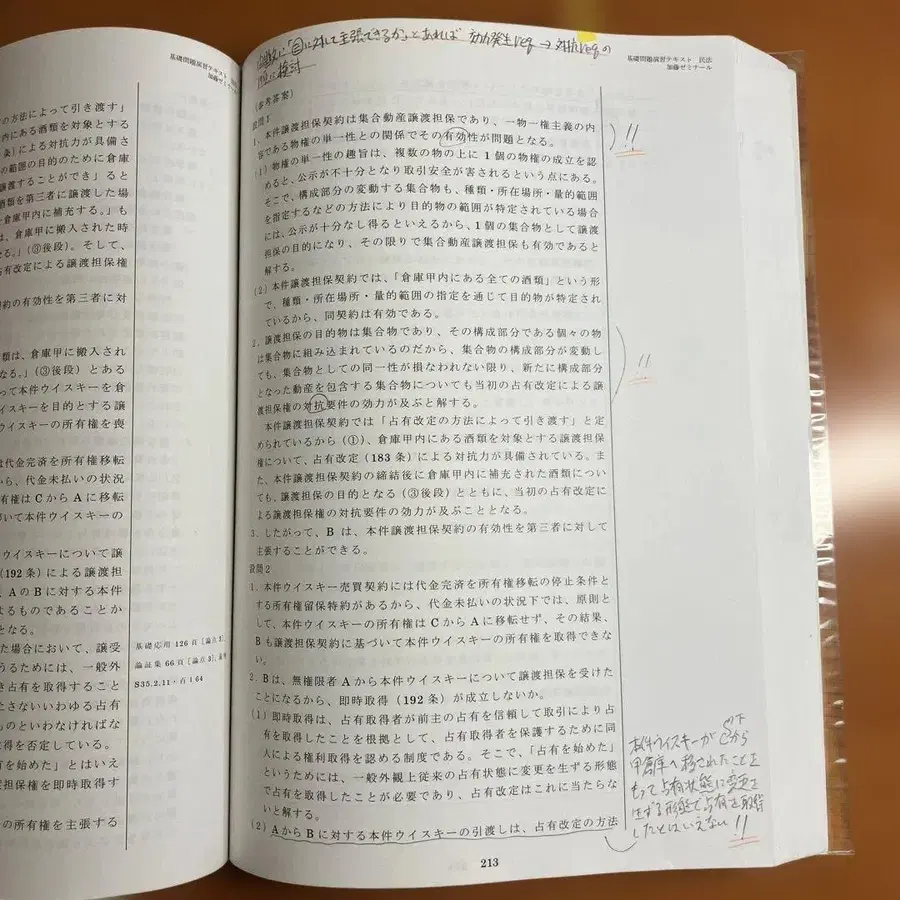 の方法によって引き渡す」
内にある酒類を対象とする
条)による対抗力が具備さ
の範囲の目的のために倉庫
譲渡することができ」ると
酒類を第三者に譲渡した場
倉庫甲内に補充する。」も
は、倉庫甲に搬入された時
る。」(③後段)。そして、
占有改定による譲渡担保権
約の有効性を第三者に対
類は、倉庫甲に搬入され
なる。」(③後段)とある
って本件ウイスキーを倉
イスキーを目的とする譲
ウイスキーの所有権を喪
は代金完済を所有権移転
から、代金未払いの状況
有権はCからAに移転
づいて本件ウイスキーの
ウイスキーについて譲
(192条)による譲渡担
、AのBに対する本件
よるものであることか
となる。
た場合において、譲受
うるためには、一般外
き占有を取得すること
たさないいわゆる占有
ものといわなければな
得を否定している。
有を始めた」とはいえ
担保権を即時取得す
の所有権を主張する
基礎応用126頁[論点1]、
論証集66頁[論点3]、
S35.2.11・百Ⅰ64
に「 に対して主張できるか」とあれば 効力発生req → 対抗reqの
に検討
基礎問題演習テキスト 民法
加藤ゼミナール
(参考答案)
設問1
1. 本件譲渡担保契約は集合動産譲渡担保であり、一物一権主義の内
容である物権の単一性との関係でその有効性が問題となる。
(1) 物権の単一性の趣旨は、複数の物の上に1個の物権の成立を認
めると、公示が不十分となり取引安全が害されるという点にある。
そこで、構成部分の変動する集合物も、種類・所在場所・量的範囲
を指定するなどの方法により目的物の範囲が特定されている場合
には、公示が十分なし得るといえるから、1個の集合物として譲渡
担保の目的になり、その限りで集合動産譲渡担保も有効であると
解する。
(2) 本件譲渡担保契約では、「倉庫甲内にある全ての酒類」という形
で、種類・所在場所・量的範囲の指定を通じて目的物が特定され
ているから、同契約は有効である。
2. 譲渡担保の目的物は集合物であり、その構成部分である個々の物
は集合物に組み込まれているのだから、集合物の構成部分が変動し
ても、集合物としての同一性が損なわれない限り、新たに構成部分
となった動産を包含する集合物についても当初の占有改定による譲
渡担保権の対抗要件の効力が及ぶと解する。
本件譲渡担保契約では「占有改定の方法によって引き渡す」と定
められているから(①)、倉庫甲内にある酒類を対象とする譲渡担保
権について、占有改定(183条)による対抗力が具備されている。ま
た、本件譲渡担保契約の締結後に倉庫甲内に補充された酒類につい
ても、譲渡担保の目的となる(③後段)とともに、当初の占有改定に
よる譲渡担保権の対抗要件の効力が及ぶこととなる。
3. したがって、Bは、本件譲渡担保契約の有効性を第三者に対して
主張することができる。
設問2
1. 本件ウイスキー売買契約には代金完済を所有権移転の停止条件と
する所有権留保特約があるから、代金未払いの状況下では、原則と
して、本件ウイスキーの所有権はCからAに移転せず、その結果、
Bも譲渡担保契約に基づいて本件ウイスキーの所有権を取得できな
い。
2. Bは、無権限者Aから本件ウイスキーについて譲渡担保を受けた
ことになるから、即時取得(192条)が成立しないか。
(1) 即時取得は、占有取得者が前主の占有を信頼して取引により占
有を取得したことを根拠として、占有取得者を保護するために同
人による権利取得を認める制度である。そこで、「占有を始めた」
というためには、一般外観上従来の占有状態に変更を生ずる形態
で占有を取得したことが必要であり、占有改定はこれに当たらな
いと解する。
(2) AからBに対する本件ウイスキーの引渡しは、占有改定の方法
!!
!!
本件ウイスキーがCから
甲倉庫へ移されたことを
もって占有状態に変更を
生ずる形態で占有を取得
したとはいえない!!
213